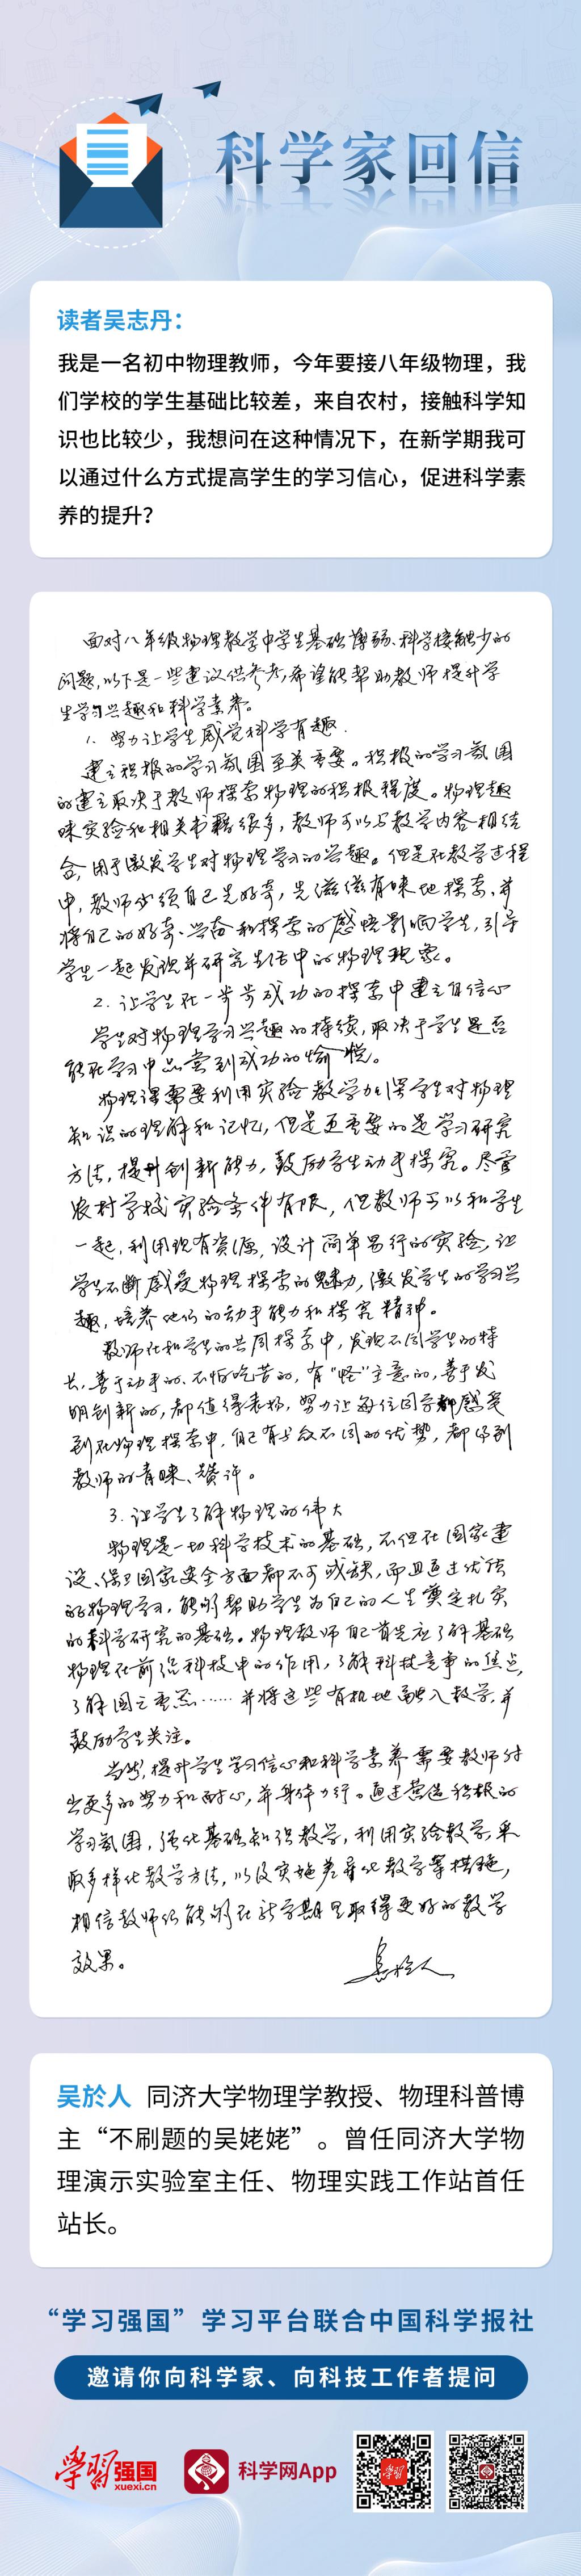 科学家回信
读者吴志丹：
我是一名初中物理教师，今年要接八年级物理，我
们学校的学生基础比较差，来自农村，接触科学知
识也比较少，我想问在这种情况下，在新学期我可
以通过什么方式提高学生的学习信心，促进科学素
养的提升？
面对八年级物理教学中学生基础薄弱、科学接触少的
问题，以下是一些建议供参考，希望能帮助教师提升学
生学习兴趣和科学素养。
1. 努力让学生感觉科学有趣.
建立积极的学习氛围至关重要。积极的学习氛围
的建立取决于教师探索物理的积极程度。物理趣
味实验和相关书籍很多，教师可以与教学内容相结
合，用于激发学生对物理学习的兴趣。但是在教学过程
中，教师必须自己先好奇，先滋滋有味地探索，并
将自己的好奇、兴奋和探索的感悟影响学生，引导
学生一起发现并研究生活中的物理现象。
2. 让学生在一步步成功的探索中建立自信心
学生对物理学习兴趣的持续，取决于学生是否
能在学习中品尝到成功的愉悦。
物理课需要利用实验教学加深学生对物理
知识的理解和记忆，但是更重要的是学习研究
方法，提升创新能力，鼓励学生动手探究。尽管
农村学校实验条件有限，但教师可以和学生
一起，利用现有资源，设计简单易行的实验，让
学生不断感受物理探索的魅力，激发学生的学习兴
趣，培养他们的动手能力和探究精神。
教师在和学生的共同探索中，发现不同学生的特
长，善于动手的、不怕吃苦的，有“怪”主意的，善于发
明创新的，都值得表扬，努力让每位同学都感受
到在物理探索中，自己有与众不同的优势，都得到
教师的青睐、赞许。
3. 让学生了解物理的伟大
物理是一切科学技术的基础，不但在国家建
设、保卫国家安全方面都不可或缺，而且通过优质
的物理学习，能够帮助学生为自己的人生奠定扎实
的科学研究的基础。物理教师自己首先应了解基础
物理在前沿科技中的作用，了解科技竞争的焦点，
了解国之重器……并将这些有机地融入教学，并
鼓励学生关注。
当然，提升学生学习信心和科学素养需要教师付
出更多的努力和耐心，并身体力行。通过营造积极的
学习氛围，强化基础知识教学，利用实验教学，采
取多样化教学方法，以及实施差异化教学等措施，
相信教师们能够在新学期里取得更好的教学
效果。
吴於人
吴於人 同济大学物理学教授、物理科普博
主“不刷题的吴姥姥”。曾任同济大学物
理演示实验室主任、物理实践工作站首任
站长。
“学习强国”学习平台联合中国科学报社
邀请你向科学家、向科技工作者提问
学习强国
xuexi.cn
科学网App
学习